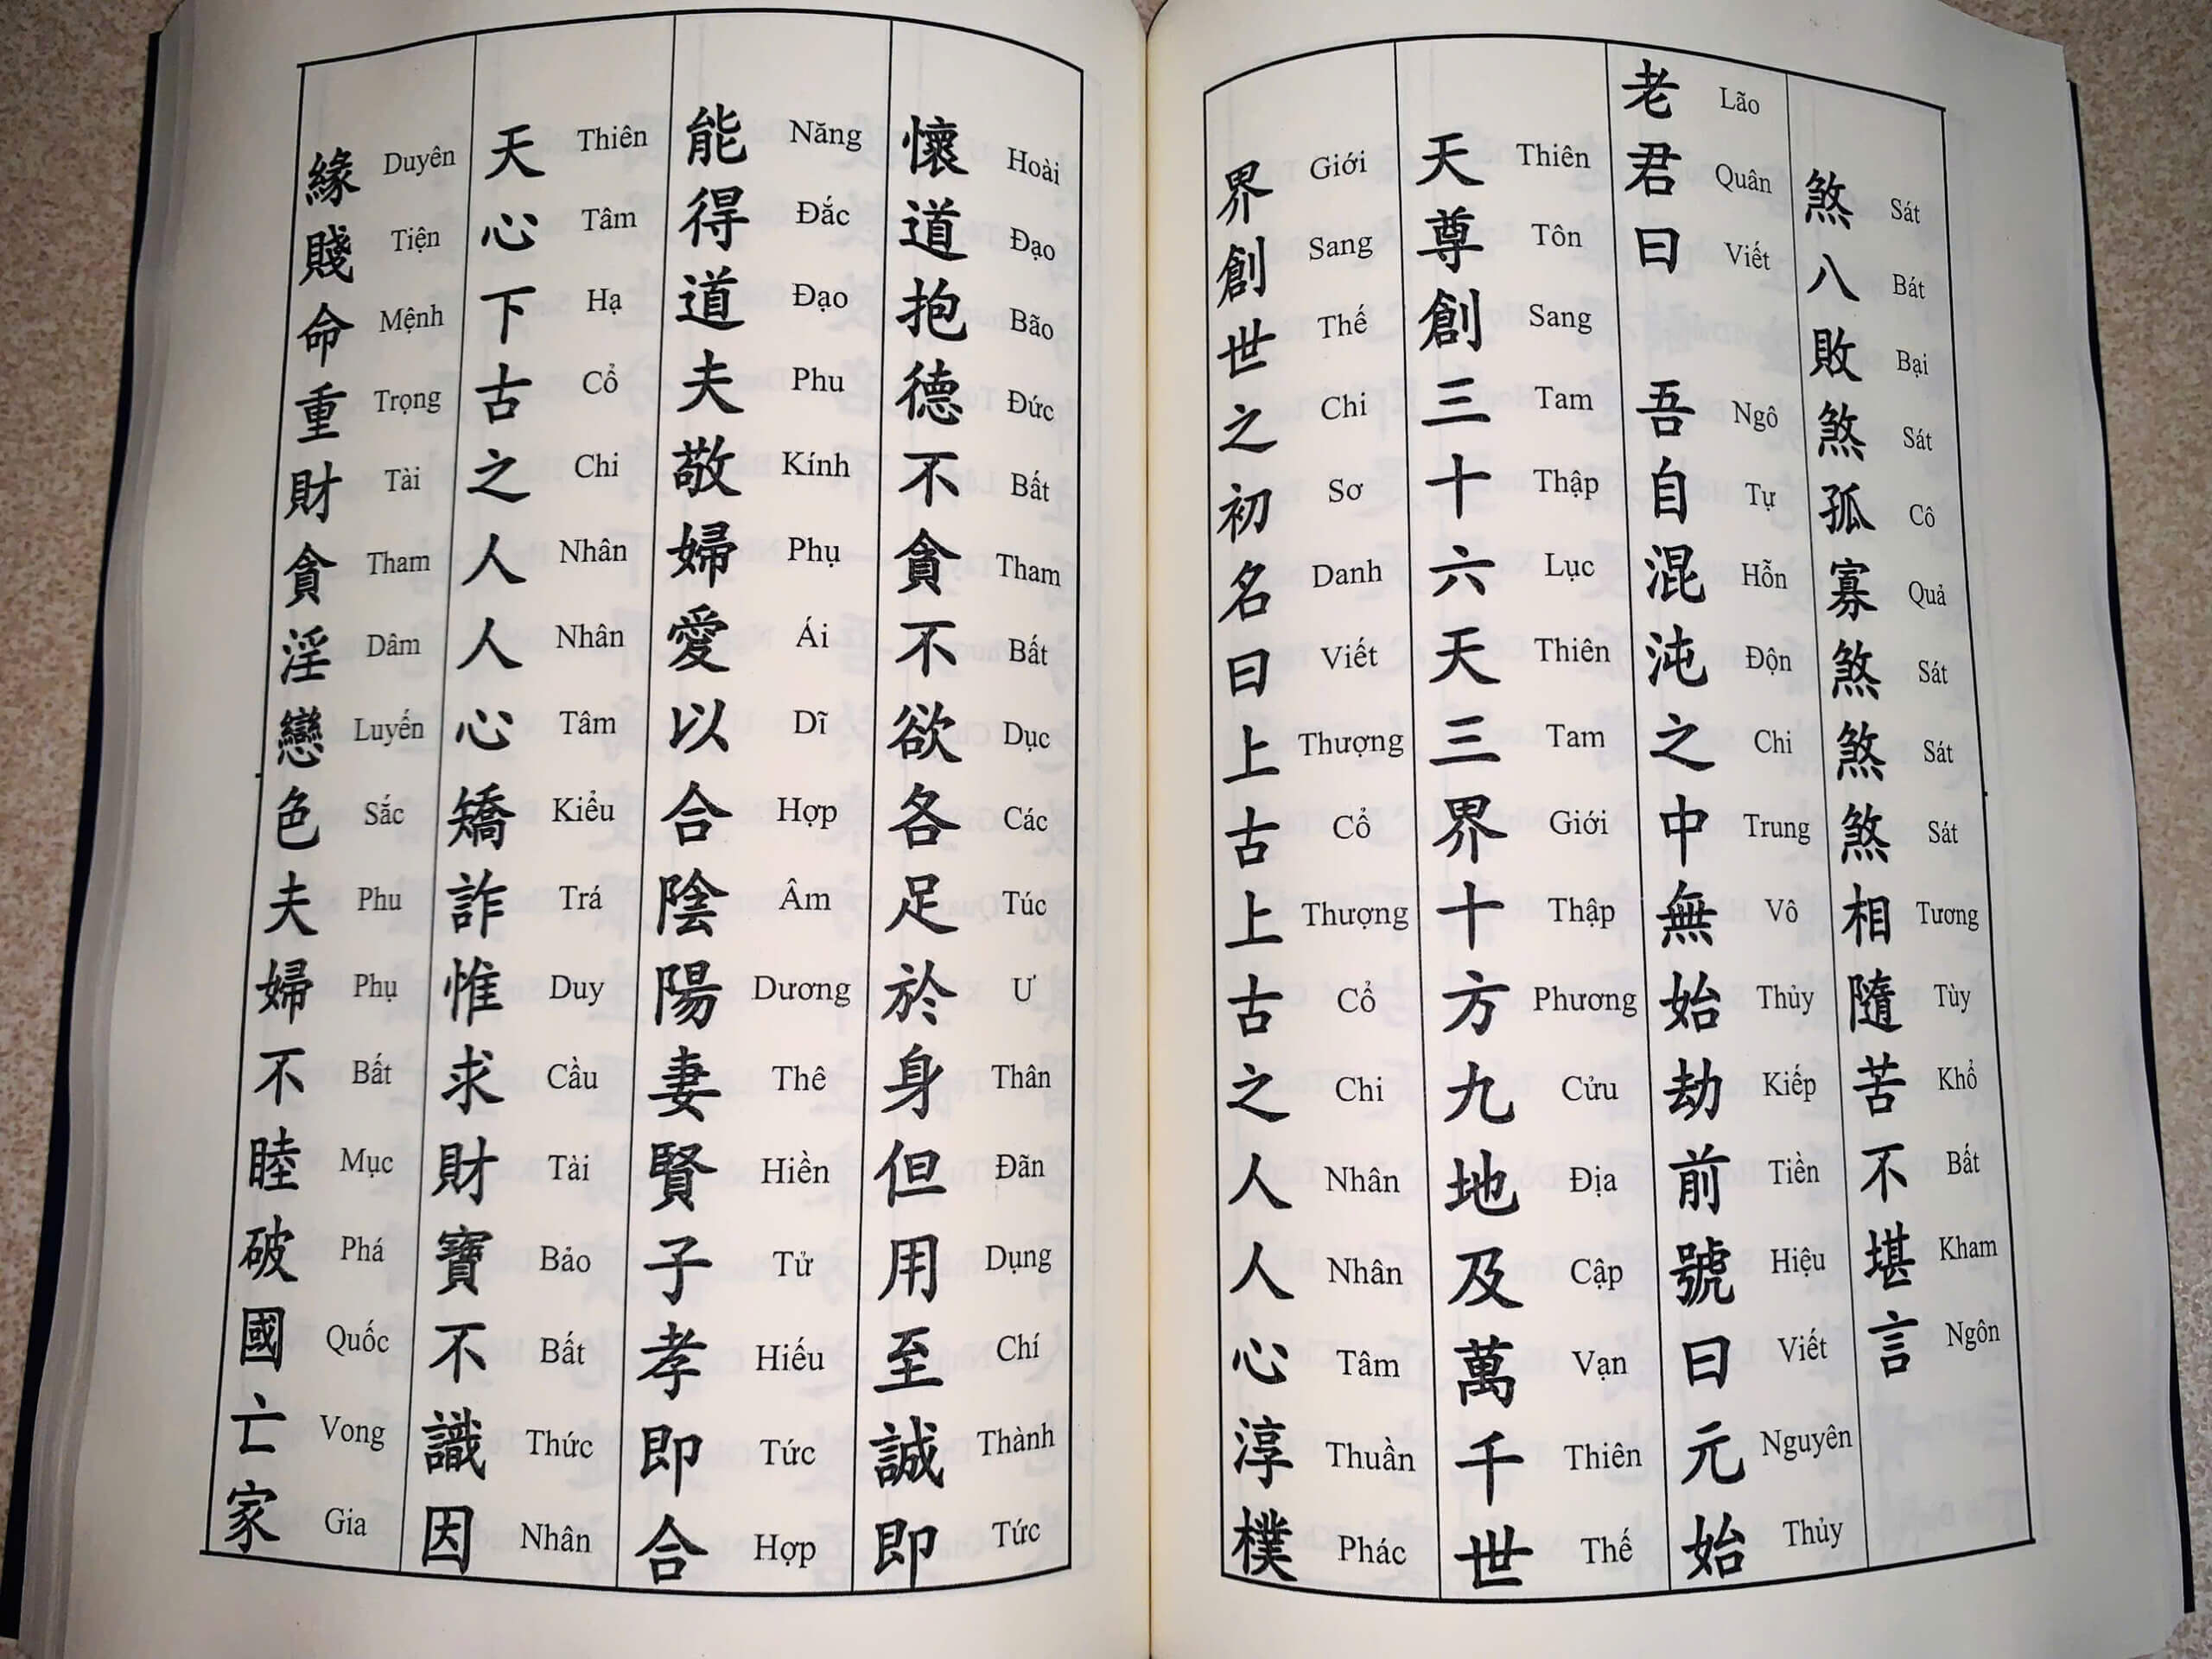 煞八敗煞孤寡煞煞煞相隨苦不堪言
Sát Bát Bại Sát Cô Quả Sát Sát Sát Tương Tùy Khổ Bất Kham Ngôn
老君曰吾自混沌之中無始劫前號曰元始
Lão Quân Viết Ngô Tự Hỗn Độn Chi Trung Vô Thủy Kiếp Tiền Hiệu Viết Nguyên Thủy
天尊創三十六天三界十方九地及萬千世
Thiên Tôn Sang Tam Thập Lục Thiên Tam Giới Thập Phương Cửu Địa Cập Vạn Thiên Thế
界創世之初名曰上古上古之人人心淳樸
Giới Sang Thế Chi Sơ Danh Viết Thượng Cổ Thượng Cổ Chi Nhân Nhân Tâm Thuần Phác
懷道抱德不貪不欲各足於身但用至誠即
Hoài Đạo Bão Đức Bất Tham Bất Dục Các Túc Ư Thân Đãn Dụng Chí Thành Tức
能得道夫敬婦愛以合陰陽妻賢子孝即合
Năng Đắc Đạo Phu Kính Phụ Ái Dĩ Hợp Âm Dương Thê Hiền Tử Hiếu Tức Hợp
天心下古之人人心矯詐惟求財寶不識因
Thiên Tâm Hạ Cổ Chi Nhân Nhân Tâm Kiểu Trá Duy Cầu Tài Bảo Bất Thức Nhân
緣賤命重財貪淫戀色夫婦不睦破國亡家
Duyên Tiện Mệnh Trọng Tài Tham Dâm Luyến Sắc Phu Phụ Bất Mục Phá Quốc Vong Gia